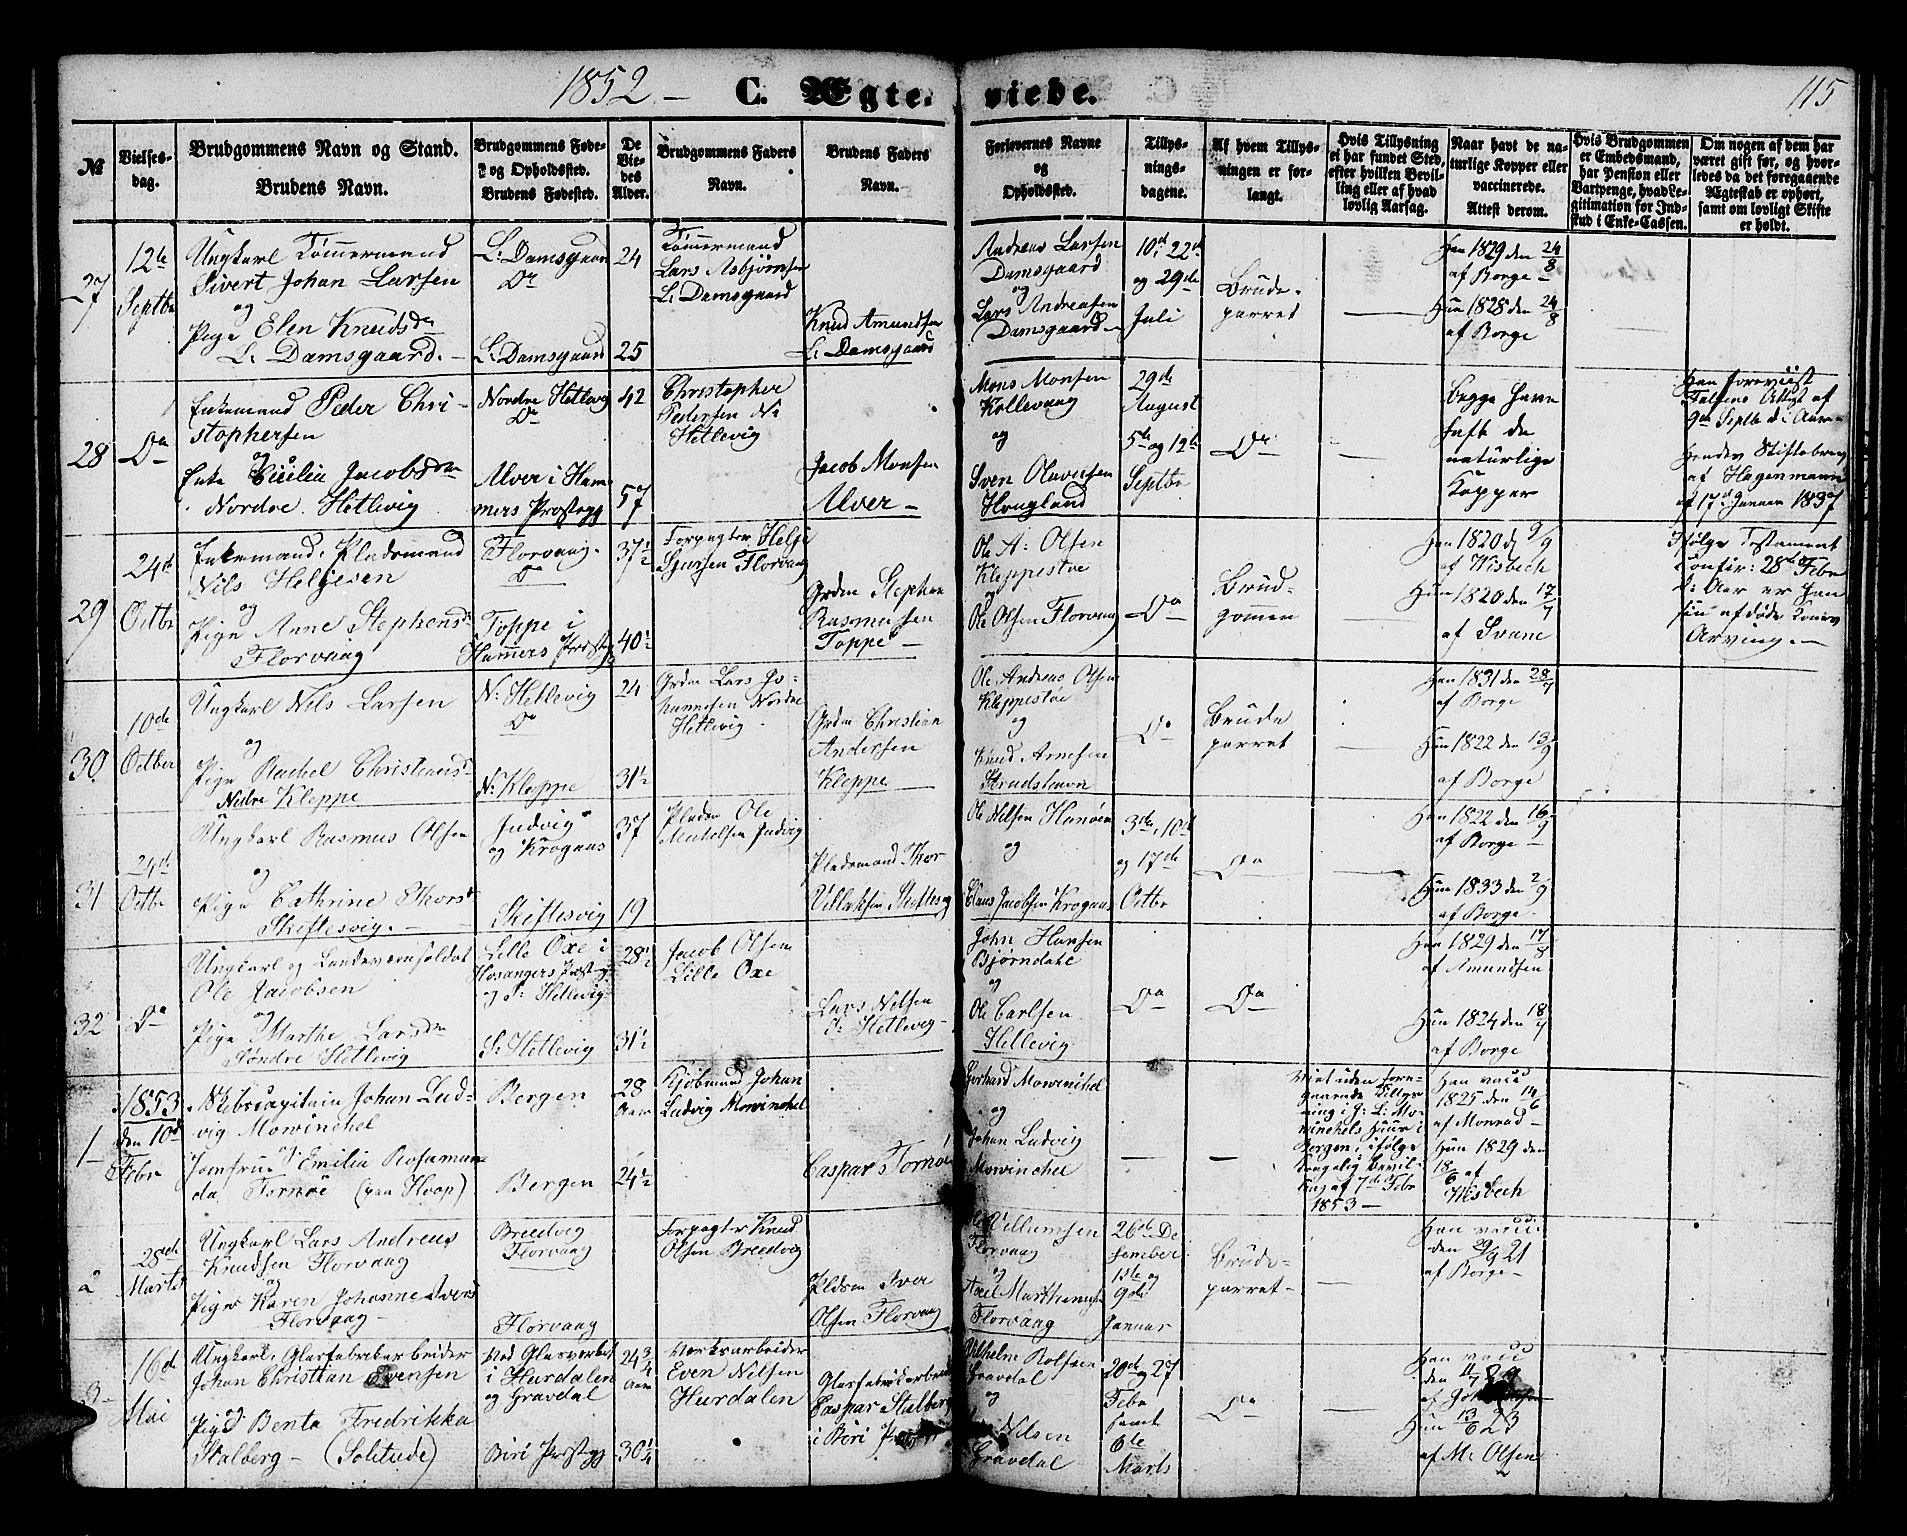 1852 –
C. Ægte-
viede.
115
№
Vielses-
dag.
Brudgommens Navn og Stand.
Brudens Navn.
Brudgommens Føde-
og Opholdssted.
Brudens Fødested.
De
Vie-
des
Alder.
Brudgommens Faders
Navn.
Brudens Faders
Navn.
Forlovernes Navne
og
Opholdssted.
Tillys-
nings-
dagene.
Af hvem Tillys-
ningen er for-
langt.
Hvis Tillysning
ei har fundet Sted,
efter hvilken Bevil-
ling eller af hvad
lovlig Aarsag.
Naar havt de na-
turlige Kopper eller
vaccinerede.
Attest derom.
Hvis Brudgommen
er Embedsmand,
har Pension eller
Vartpenge, hvad Le-
gitimation for Ind-
skud i Enke-Cassen.
Om nogen af dem har
været gift før, og hvor-
ledes da det foregaaende
Ægteskab er ophørt,
samt om lovligt Skifte
er holdt.
27
12te
Septbr
Ungkarl Tømmermand
Sivert Johan Larsen
og
Pige Elen Knudsdr
L: Damsgaard. –
L: Damsgaard
Do
L: Damsgaard
24
25
Tømmermand
Lars Asbjørnsen
L: Damsgaard
Knud Amundsen
L: Damsgaard
Andreas Larsen
Damsgaard
og
Lars Andreasen
Damsgaard
10d, 22d
og 29de
Juli
Brude-
parret
Han 1829 den 24/8
af Borge –
Hun 1828 den 24/8
af Borge
28
Do
Enkemand Peder Chri-
stophersen
og
Enke Cicilia Jacobsdr
Nordre Hetlevig
Nordre Hetlevig
Do
Alver i Ham-
mers Præstegj
42
57
Christopher
Pedersen N:
Hetlevig
Jacob Monsen
Alver –
Mons Monsen
Kollevaag
og
Sven Olavesen
Hougland
29de
August
5te og 12te
Septbr
Do
Begge have
haft de
naturlige
Kopper
Han foreviist
Attest af
9de Septb d: Aar –
Hendes Skiftebrev
af Hagenmann
af 17d Januar 1837
29
24d
Octbr
Enkemand. Pladsmand
Nils Helgesen
og
Pige Anne Stephensd
Florvaag
Florvaag.
Do
Toppe i
Hammers Præstegj
37½
40½
Forpagter Helje
Florvaag
Grdm Stephen
Rasmussen
Toppe –
Ole A: Olsen
Kleppestøe
og
Ole Olsen Florvaag
Do
Brud-
gommen
Han 1820 d 9/9
af Wisbech
Hun 1820 den 17/7
af Svane
Ifølge Testament
Confir: 28de Febr
d: Aar er han
sin afdøde Kones
Arving. –
30
10de
Octber
Ungkarl Nils Larsen
og
Pige Rachel Christensd
Nedre Kleppe
N: Hetlevig
Do
N: Kleppe
24
31½
Grdm Lars Jo-
hannesen Nordre
Hetlevig
Grdm Christian
Andersen
Kleppe
Ole Andreas Olsen
Kleppestøe
og
Knud Arnesen
Strudshavn
Do
Brude
parret
Han 1831 den 28/7
af Borge
Hun 1822 den 13/9
af Borge
31
24d
Octbr
Ungkarl Rasmus Olsen
og
Pige Cathrine Thorsd
Skiftesvig. –
Judvig
og Krogaas
Skiftesvig
37
19
Pladsm Ole
Mikkelsen Judvig
Pladsmand Thor
Villaksen Skiftesvig
Ole Nilsen Hanøen
og
Claus Jacobsen Krogaas
3de, 10d
og 17de
Octbr
Do
Han 1822 den 16/9
af Borge –
Hun 1833 den 2/9
af Borge
32
Do
Ungkarl og Landeværnsoldat
Ole Jacobsen
og
Pige Marthe Larsdr
Søndre Hetlevig
Lille Oxe i
Hosangers Præstegj
og S: Hetlevig
S: Hetlevig
28½
31½
Jacob Olsen
Lille Oxe
Lars Nilsen
S: Hetlevig –
John Hansen
Bjørndale
og
Ole Carlsen
Hetlevig
Do
Do
Han 1829 den 17/8
af Amundsen
Hun 1824 den 18/9
af Borge
1
1853
den 10d
Febr
Skibscapitain Johan Lud-
vig Mowinckel
og
Jomfru Emilia Rosamun-
da Tornøe (paa Hoop)
Bergen
Bergen
28
Aar
24½
Kjøbmand Johan
Ludvig Mowinckel
Caspar Tornøe
Gerhard Mowinckel
og
Johan Ludvig
Mowinckel
Viet uden fore-
gaaende Tillys-
ning i J: L: Mo-
winckels Huus i
Bergen, ifølge
kongelig Bevil-
ling af 7de Febr
1853 –
Han vacci
1825 den 14/6
af Monrad –
Hun 1829 den
18/6 af
Wisbech
2
28de
Marts
Ungkarl Lars Andreas
Knudsen Florvaag
og
Pige Karen Johanne Ivers
Florvaag –
Breedvig
Florvaag
Florvaag
Forpagter Knud
Olsen Breedvig
Pladsm Iver
Olsen Florvaag
Villumsen
Florvaag
og
Axel Marthinusen
Florvaag
26de De
sember
1ste og
9de
Januar
Brude-
parret –
Han vacci
den 29/9 21
af Borge –
3
16d
Mai
Ungkarl. Glasfabrikarbeider
Johan Christian Evensen
og
Pige Benta Fredrikka
Stalberg – (Solitude)
Ved Glasværket
i Hurdalen
og Gravdal
Biri Præstegj
24¾
Aar
30¼
Værksarbeider
Even Nilsen
Hurdalen
Glasfabrikarbeid
Caspar Stalberg
i Biri
Vilhelm Rolfsen
Gravdal
og
Nilsen
Gravdal
20de og 27
Febr
samt
6te
Marts
Do
Han vacci
den
Hun 13/6 23
af M: Olsen